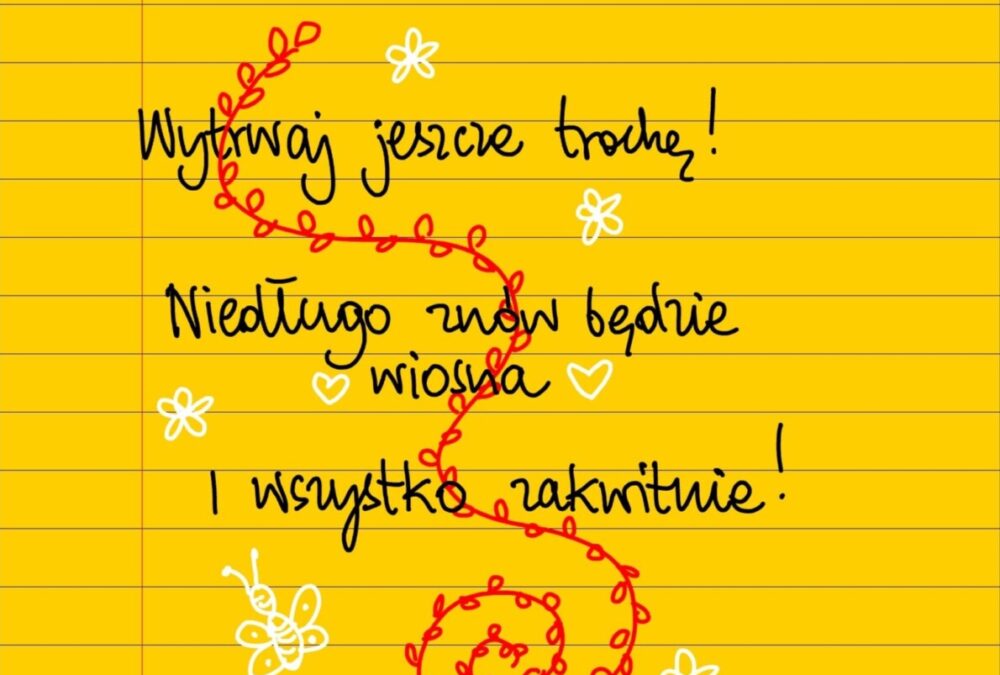 Wytrwaj jeszcze trochę!
Niedługo znów będzie
wiosna
I wszystko zakwitnie!